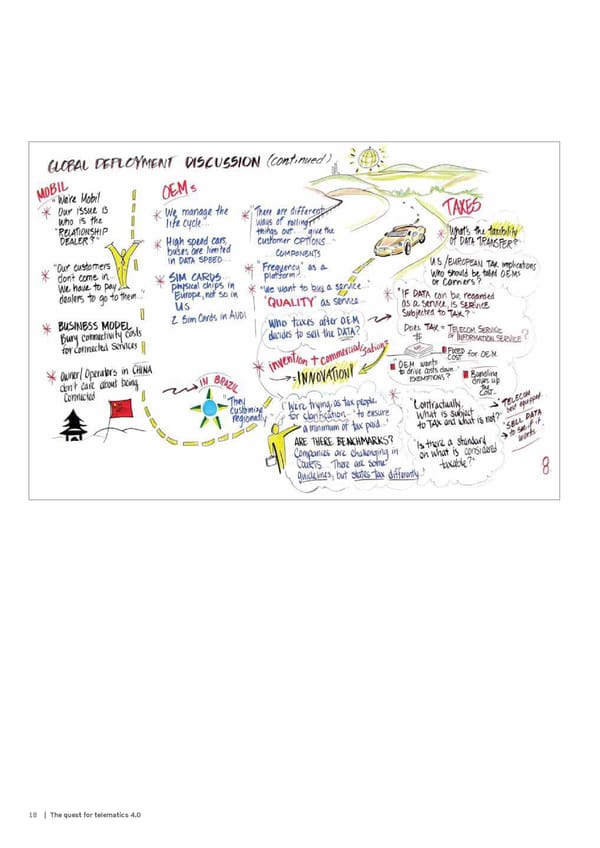 GLOBAL DEPLOYMENT DISCUSSION (continued)
MOBIL
"We're Mobil
Our issue is
who is the
"RELATIONSHIP
DEALER?"
"Our customers
don't come in.
We have to pay
dealers to go to them..."
BUSINESS MODEL
Bury connectivity costs
for connected services
Owner/Operators in CHINA
don't care about being
connected
OEMs
We manage the
life cycle...
High speed cars,
buses are limited
in DATA SPEED...
SIM CARDS...
physical chips in
Europe, not so in
U.S
2 Sim Cards in AUDI
IN BRAZIL
"They
customize
regionally
"There are different
ways of rolling
things out... "give the
customer OPTIONS..."
COMPONENTS
"Frequency" as a
platform?
"We want to buy a service...
"QUALITY" as service...
Who taxes after OEM
decides to sell the DATA?
invention + commercialisation
= INNOVATION!
"We're trying, as tax people,
for clarification... to ensure
a minimum of tax paid..."
ARE THERE BENCHMARKS?
Companies are challenging in
COURTS. There are some
guidelines, but states tax differently..."
TAXES
What's the taxibility
of DATA TRANSFER?
U.S./EUROPEAN TAX implications
Who should be taxed OEMs
or Carriers?
"IF DATA can be regarded
as a service, is SERVICE
Subjected to TAX?"
DOES TAX = TELECOM SERVICE
or INFORMATION SERVICE?
$
FIXED
COST for OEM
OEM wants
to drive costs down
EXEMPTIONS?
Bundling
drives up
the
cost
"Contractually,
What is subject
to TAX and what is not?"
TELECOM
best equipped
"SELL DATA
to see if it
works."
"Is there a standard
on what is considered
taxable?"
8.
18 | The quest for telematics 4.0